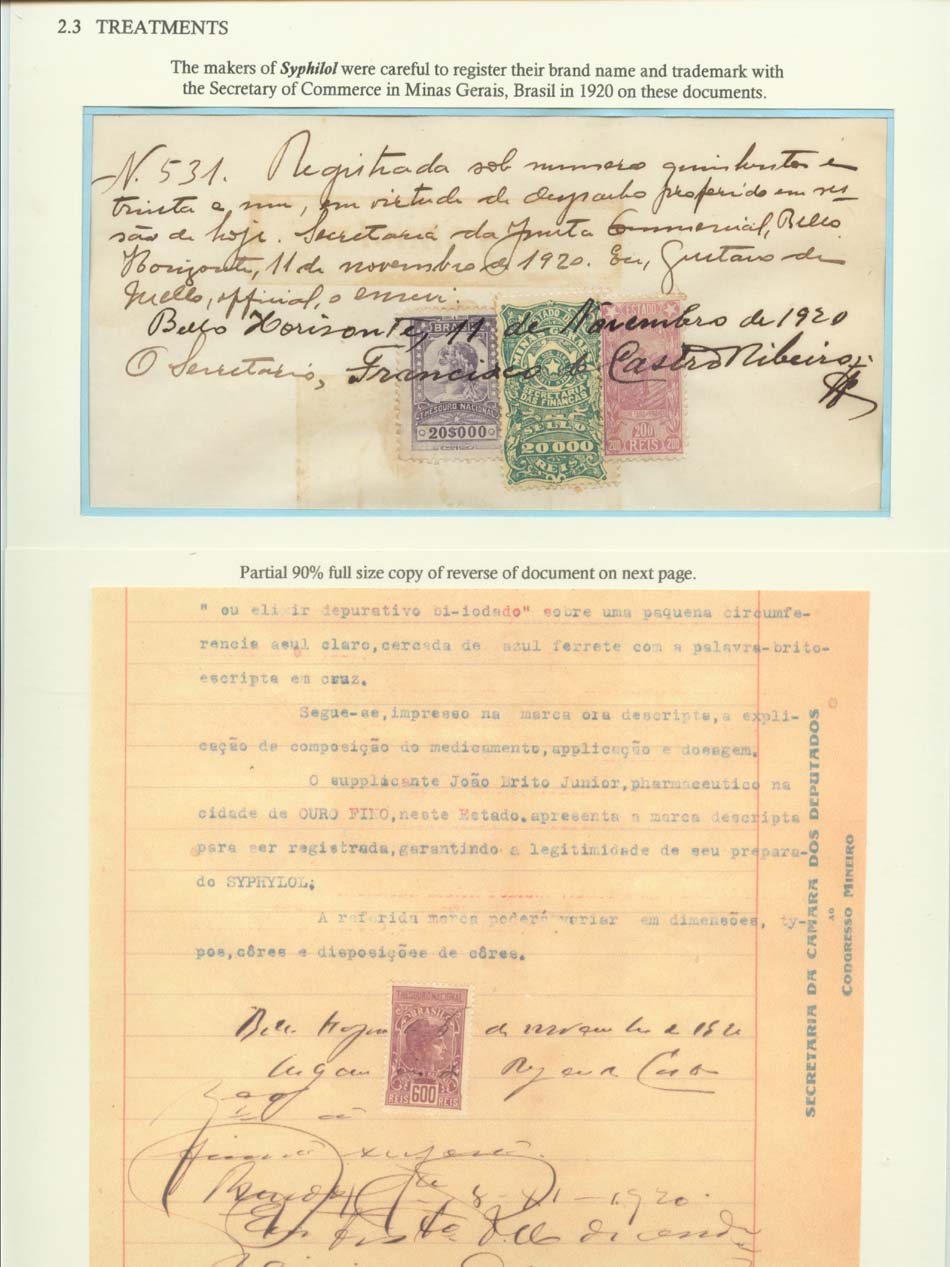 2.3 TREATMENTS
The makers of Syphilol were careful to register their brand name and trademark with
the Secretary of Commerce in Minas Gerais, Brasil in 1920 on these documents.
N. 531. Registrada sob numero quinhentos e
trinta e um, em virtude de despacho proferido em ses-
são de hoje. Secretaria da Junta Commercial, Bello
Horizonte, 11 de novembro de 1920. Eu, Gustavo de
Mello, official, o escrevi.
Bello Horisonte, 11 de Novembro de 1920
O Secretario, Francisco de Castro Ribeiro
BRASIL
THESOURO NACIONAL
20$000
ESTADO DE
MINAS GERAES
SECRETARIA
DAS FINANÇAS
SELLO
20000
REIS
ESTADO
200
200 REIS 200
Partial 90% full size copy of reverse of document on next page.
" ou elixir depurativo bi-iodado" sobre uma paquena circumfe-
rencia asul claro,cercada de azul ferrete com a palavra-brito-
escripta em cruz.
Segue-se,impresso na marca ora descripta,a expli-
cação da composição do medicamento,applicação e dosagem.
O supplicante João Brito Junior,pharmaceutico na
cidade de OURO FINO,neste Estado,apresenta a marca descripta
para ser registrada,garantindo a legitimidade de seu prepara-
do SYPHYLOL;
A referida marca poderá variar em dimensões, ty-
pos,côres e disposições de côres.
SECRETARIA DA CAMARA DOS DEPUTADOS
AO
CONGRESSO MINEIRO
THESOURO NACIONAL
BRASIL
REIS 600 REIS
de novembro de 1920
8-XI-1920.